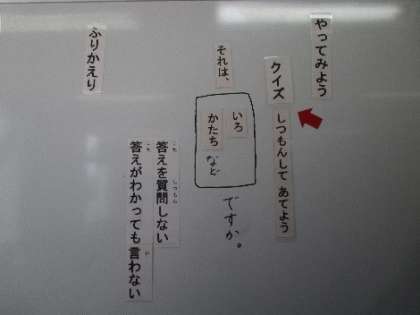 やってみよう
クイズ
しつもんして あてよう
それは、
いろ
かたち
など
ですか。
答えを質問しない
答えがわかっても言わない
ふりかえり